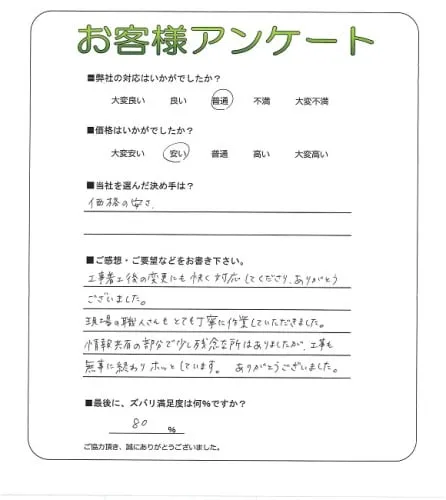 お客様アンケート
■弊社の対応はいかがでしたか？
大変良い 良い 普通 不満 大変不満
■価格はいかがでしたか？
大変安い 安い 普通 高い 大変高い
■当社を選んだ決め手は？
価格の安さ、
■ご感想・ご要望などをお書き下さい。
工事着工後の変更にも快く対応してくださり、ありがとう
ございました。
現場の職人さんもとても丁寧に作業していただきました。
情報共有の部分で少し残念な所はありましたが、工事も
無事に終わりホッとしています。 ありがとうございました。
■最後に、ズバリ満足度は何％ですか？
80 ％
ご協力頂き、誠にありがとうございました。